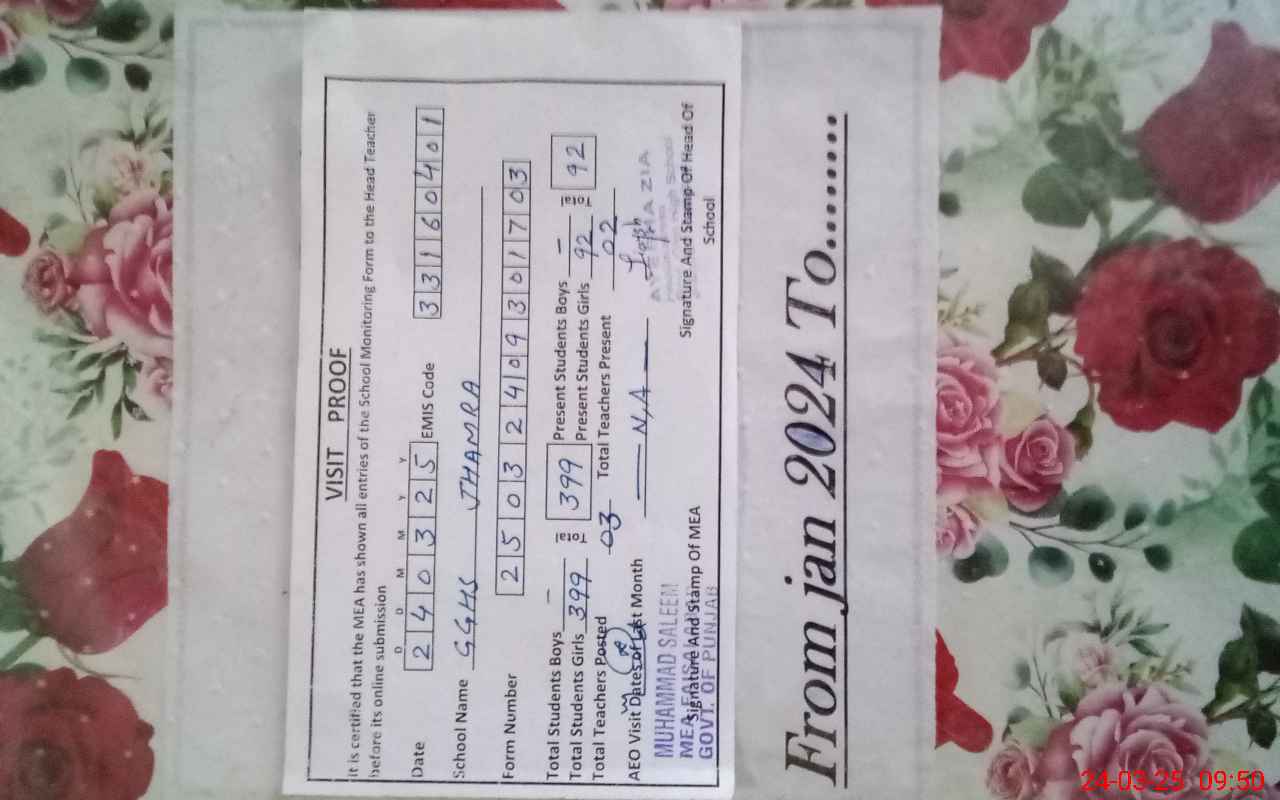 VISIT PROOF
it is certified that the MEA has shown all entries of the School Monitoring Form to the Head Teacher
before its online submission
D D M M Y Y
Date 2 4 0 3 2 5 EMIS Code 3 3 1 6 0 4 0 1
School Name GGHS JHAMRA
Form Number 2 5 0 3 2 4 0 9 3 0 1 7 0 3
Total Students Boys — Present Students Boys —
Total Students Girls 399 Total 399 Present Students Girls 92 Total 92
Total Teachers Posted 03 Total Teachers Present 02
AEO Visit Dates of Last Month — N/A —
MUHAMMAD SALEEM
MEA
GOVT. OF PUNJAB
Signature And Stamp Of MEA
ZIA
High School
Signature And Stamp Of Head Of
School
From jan 2024 To........
24-03-25 09:50